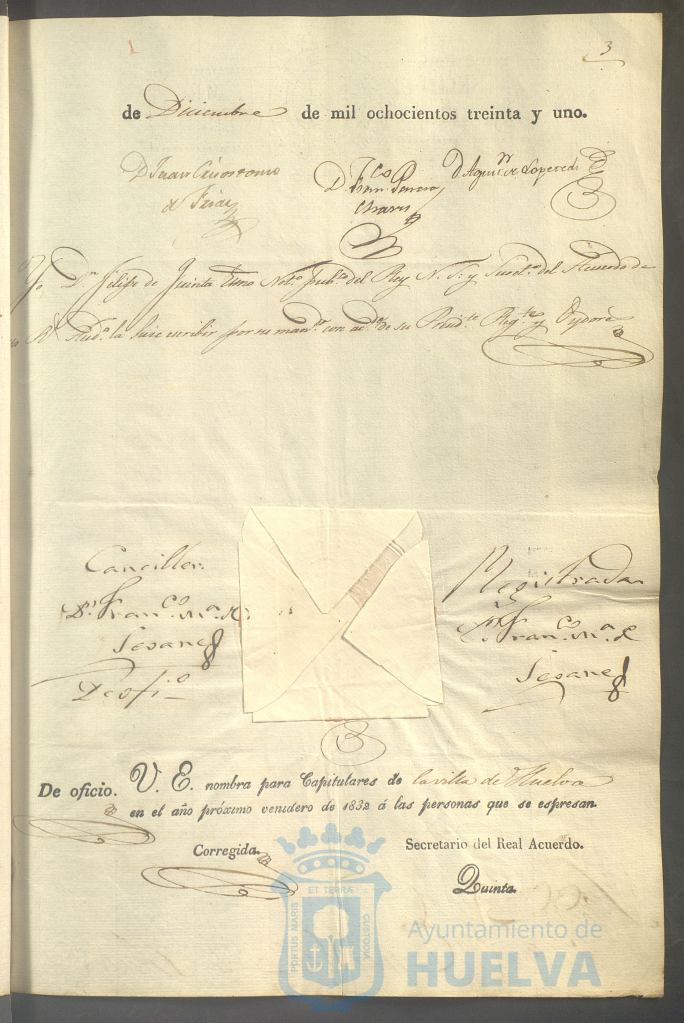 3
de Diciembre de mil ochocientos treinta y uno.
D Juan Crisostomo
D. Fco
Chaves
D Agustin de Loperedi
Yo Dn Felipe de Quinta Not.o pub.co del Rey N. S. y Secret.o del Acuerdo de
Rl Aud.a la hice escribir por su man.to con ac.do de su Presid.te Reg.te y Oydores
Canciller.
Dn Fran.co M.a de
Seoane
De ofi.o
Registrada
Dn Fran.co M.a de
Seoane
De oficio. V. E. nombra para Capitulares de la villa de Huelva
en el año próximo venidero de 1832 á las personas que se espresan.
Corregida.
Secretario del Real Acuerdo.
Quinta.
PORTUS MARIS ET TERRÆ CUSTODIA
Ayuntamiento de
HUELVA